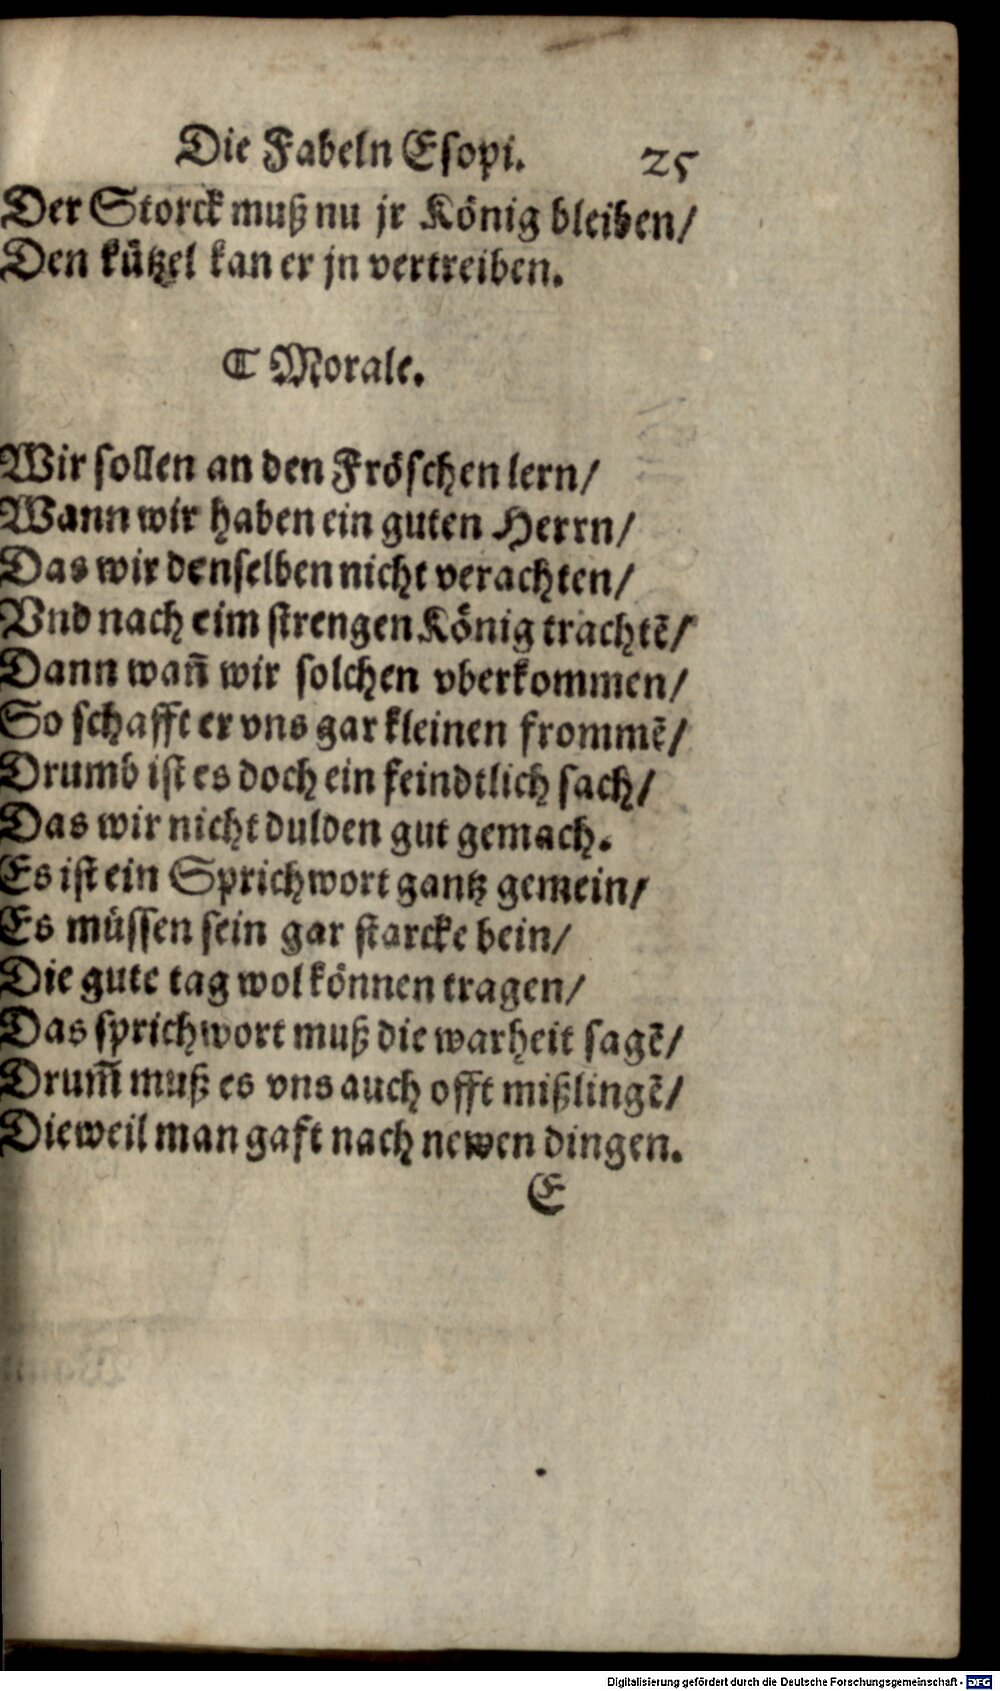 Die Fabeln Esopi. 25
Der Storck muß nu jr König bleiben/
Den kützel kan er jn vertreiben.
⸿ Morale.
Wir sollen an den Fröschen lern/
Wann wir haben ein guten Herrn/
Das wir denselben nicht verachten/
Vnd nach eim strengen König trachtē/
Dann wañ wir solchen vberkommen/
So schafft er vns gar kleinen frommē/
Drumb ist es doch ein feindtlich sach/
Das wir nicht dulden gut gemach.
Es ist ein Sprichwort gantz gemein/
Es müssen sein gar starcke bein/
Die gute tag wol können tragen/
Das sprichwort muß die warheit sagē/
Drum̅ muß es vns auch offt mißlingē/
Dieweil man gaft nach newen dingen.
E
Digitalisierung gefördert durch die Deutsche Forschungsgemeinschaft - DFG